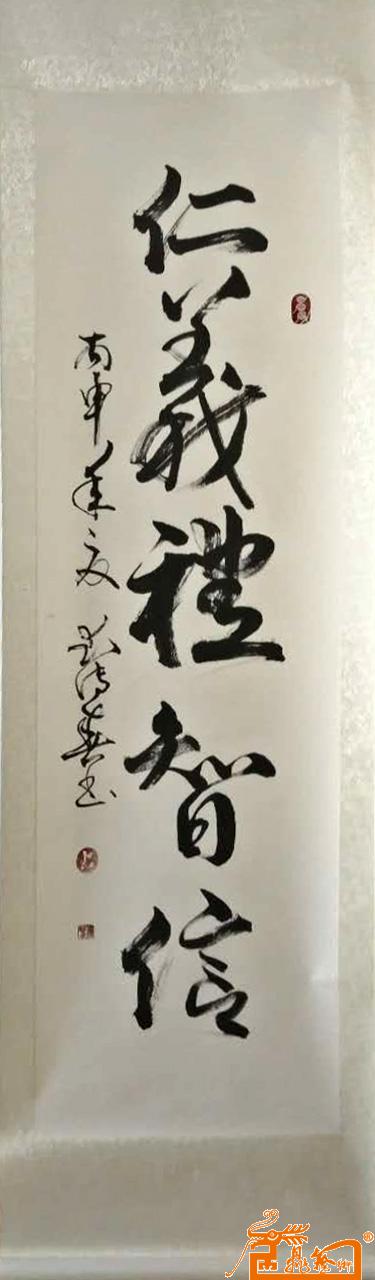 仁義禮智信
丙申年夏
書